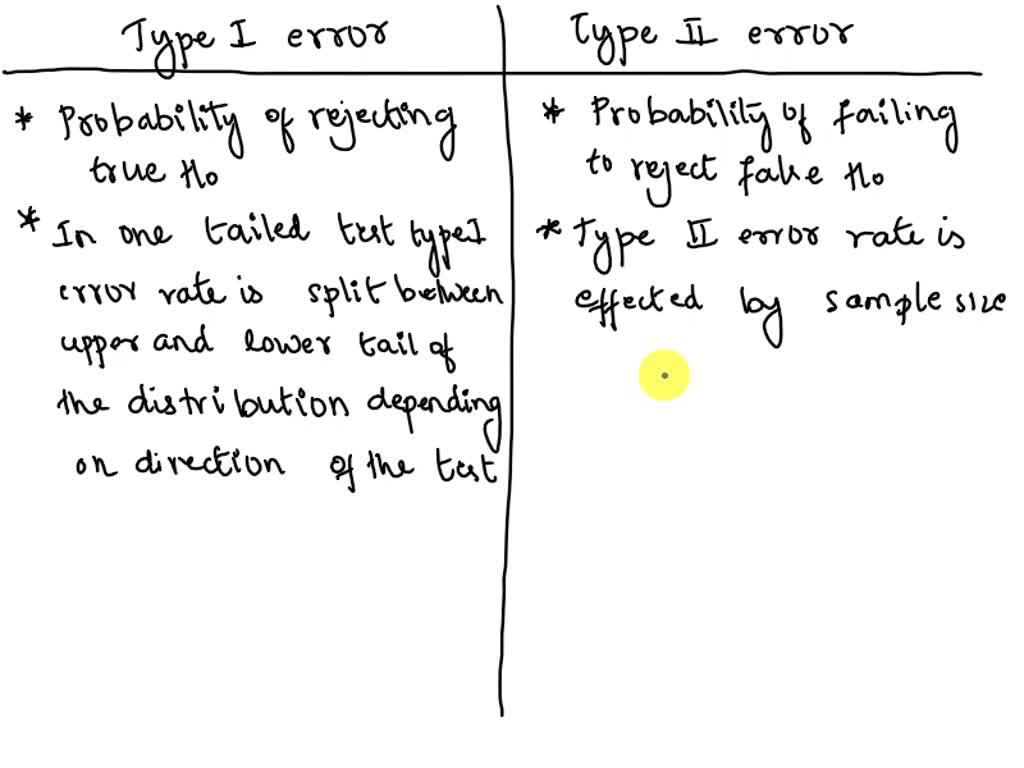 Type I error
* Probability of rejecting
true Ho
* In one tailed test type I
error rate is split between
upper and lower tail of
the distribution depending
on direction of the test
Type II error
* Probability of failing
to reject false Ho
* Type II error rate is
effected by sample size